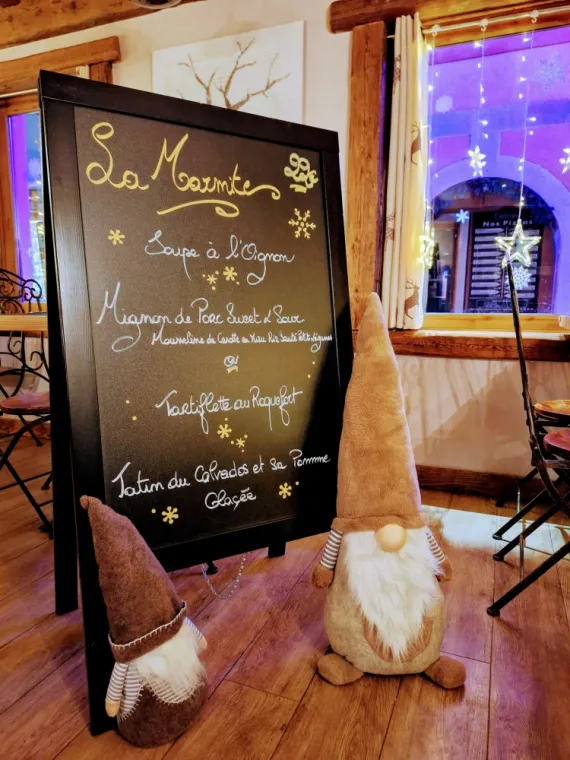 La Marmite
Soupe à l'Oignon
Mignon de Porc Sweet & Sour
Mousseline de Carotte au Miel Riz Sauté Petits Légumes
ou
Tartiflette au Roquefort
Tatin du Calvados et sa Pomme
Glaçée
Nos Pizzas